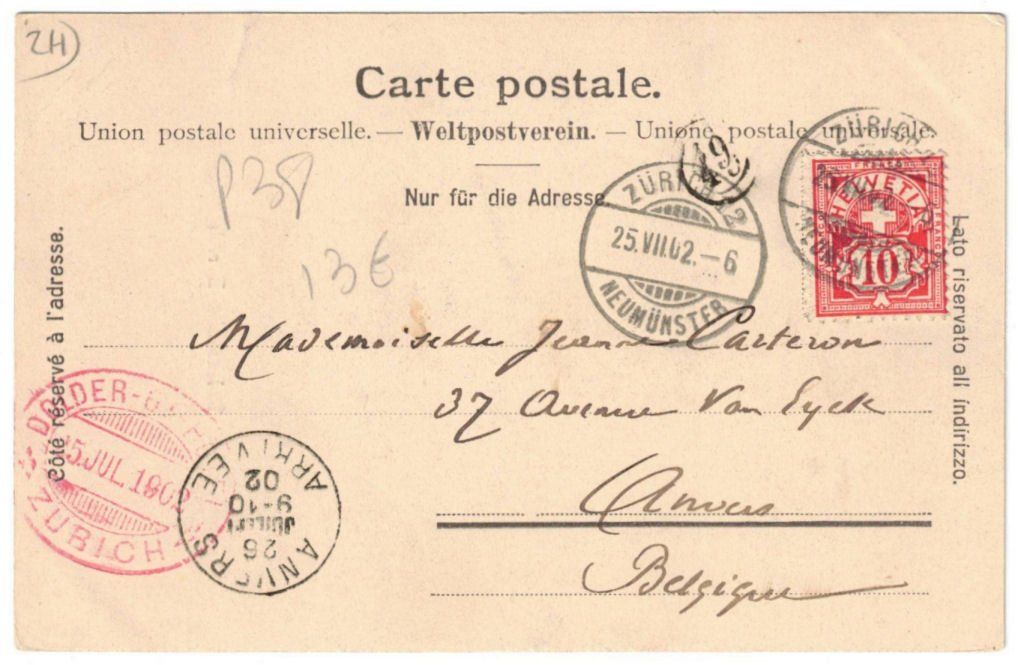 ZH
Carte postale.
Union postale universelle. — Weltpostverein. — Unione postale universale.
Nur für die Adresse.
P38
13€
49
ZÜRICH
25.VII.02.–6
NEUMÜNSTER
ZÜRICH
FRANCO
HELVETIA
10
Côté réservé à l'adresse.
Lato riservato all' indirizzo.
Mademoiselle Jeanne Carteron
37 Avenue Van Eyck
Anvers
Belgique
DOLDER-
25 JUL. 190
ZÜRICH
ANVERS
26
JUILET
9-10
02
ARRIVÉE